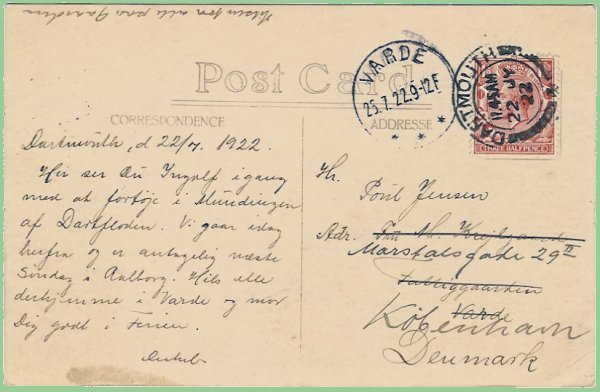 Hilsen fra alle paa
Post Card
CORRESPONDENCE
ADDRESSE
VARDE
25.7.22.9-12F
DARTMOUTH
11.45AM
22 JY
22
THREE HALFPENCE
Dartmouth, d 22/7 1922.
Her ser Du Ingolf igang
med at fortøje i Mundingen
af Dartfloden. Vi gaar idag
herfra og er antagelig næste
Søndag i Aalborg. Hils alle
derhjemme i Varde og mor
Dig godt i Ferien.
Hr.
Poul Jensen
Adr.
Marstalsgade 29 III
Varde
København
Denmark